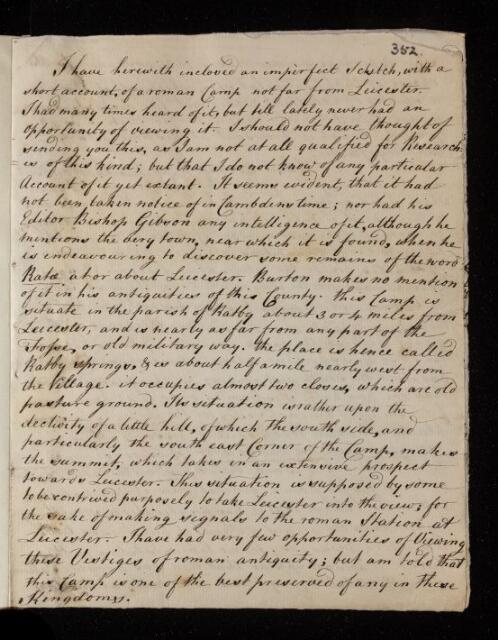 352
I have herewith inclosed an imperfect Scetch, with a
short account, of a roman Camp not far from Leicester.
I had many times heard of it, but till lately never had an
opportunity of viewing it. I should not have thought of
sending you this, as I am not at all qualified for Research
es of this kind; but that I do not know of any particular
Account of it yet extant. It seems evident, that it had
not been taken notice of in Cambdens time; nor had his
Editor Bishop Gibson any intelligence of it, although he
mentions the very town, near which it is found, when he
is endeavouring to discover some remains of the word
Ratæ at or about Leicester. Burton makes no mention
of it in his antiquities of this County. This Camp is
situate in the parish of Ratby about 3 or 4 miles from
Leicester, and is nearly as far from any part of the
Fosse, or old military way. the place is hence called
Ratby springs, & is about half a mile nearly west from
the Village. it occupies almost two closes, which are old
pasture ground. Its situation is rather upon the
declivity of a little hill, of which the south side, and
particularly the south east Corner of the Camp, makes
the summit, which takes in an extensive prospect
towards Leicester. This situation is supposed by some
to be contrived purposely to take Leicester into the view; for
the sake of making segnals to the roman Station at
Leicester. I have had very few opportunities of Viewing
these Vestiges of roman antiquity; but am told that
this Camp is one of the best preserved of any in these
Kingdoms.